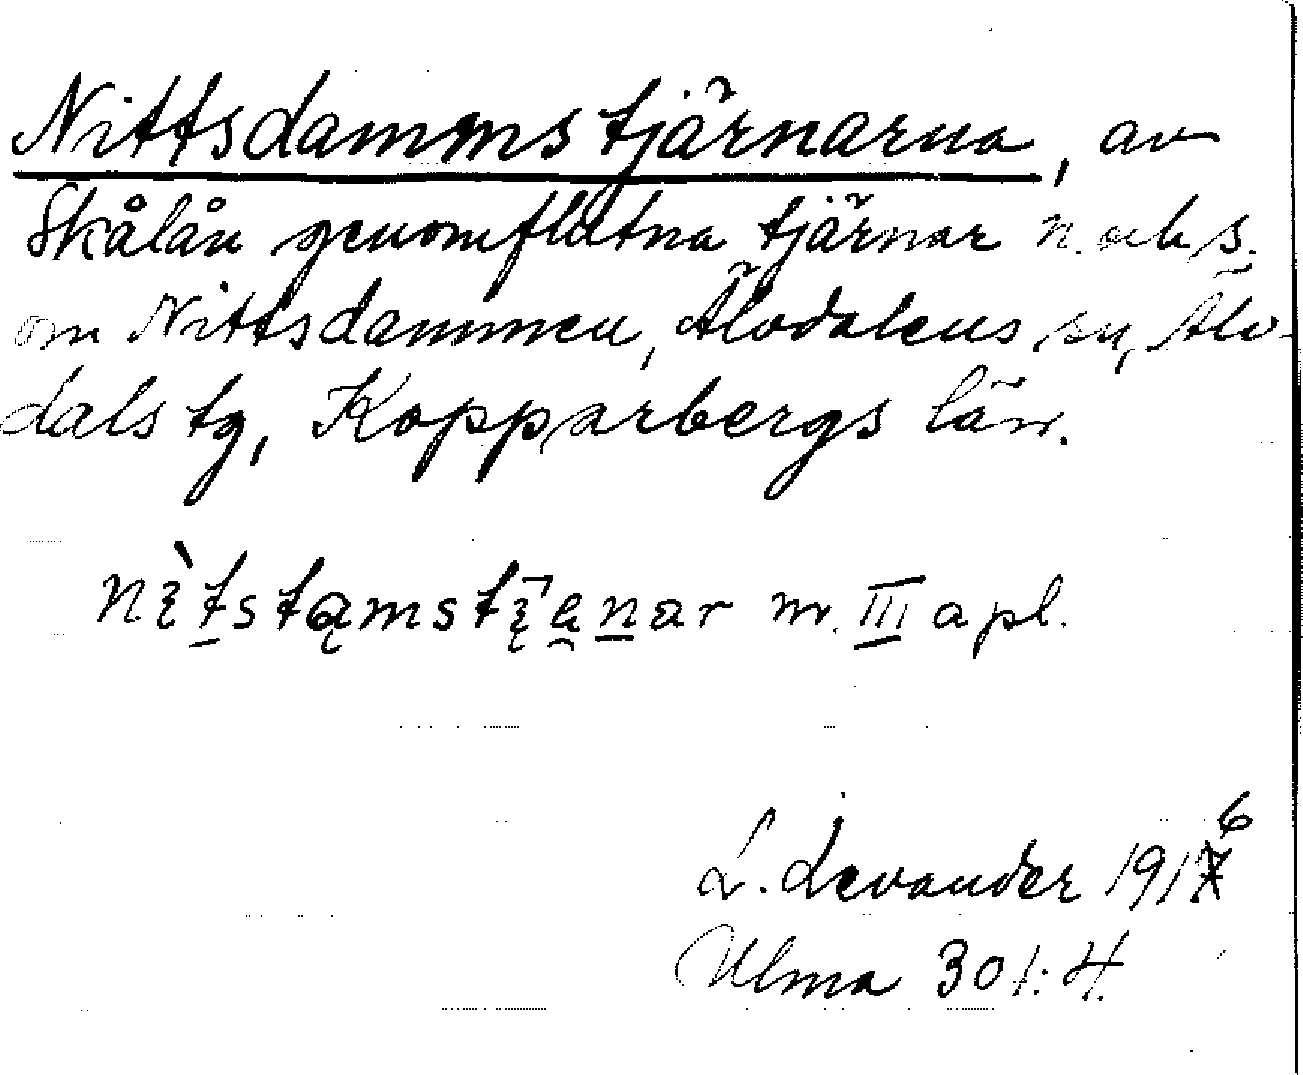 Nittsdammstjärnarna, av
Skålån genomflutna tjärnar n. och s.
om Nittsdammen, Älvdalens sn, Älv-
dals tg, Kopparbergs län.
nìtstąmstįa̯nar nr. III a pl.
L. Levander 1916
Ulma 301:4.